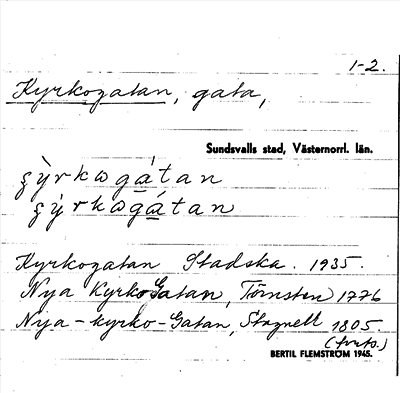 1-2.
Kyrkogatan, gata,
Sundsvalls stad, Västernorrl. län.
Kyrkogatan Stadska. 1935.
Nya KyrkoGatan, Törnsten 1776
Nya-kyrko-Gatan, Stagnell 1805.
(forts.)
BERTIL FLEMSTRÖM 1945.